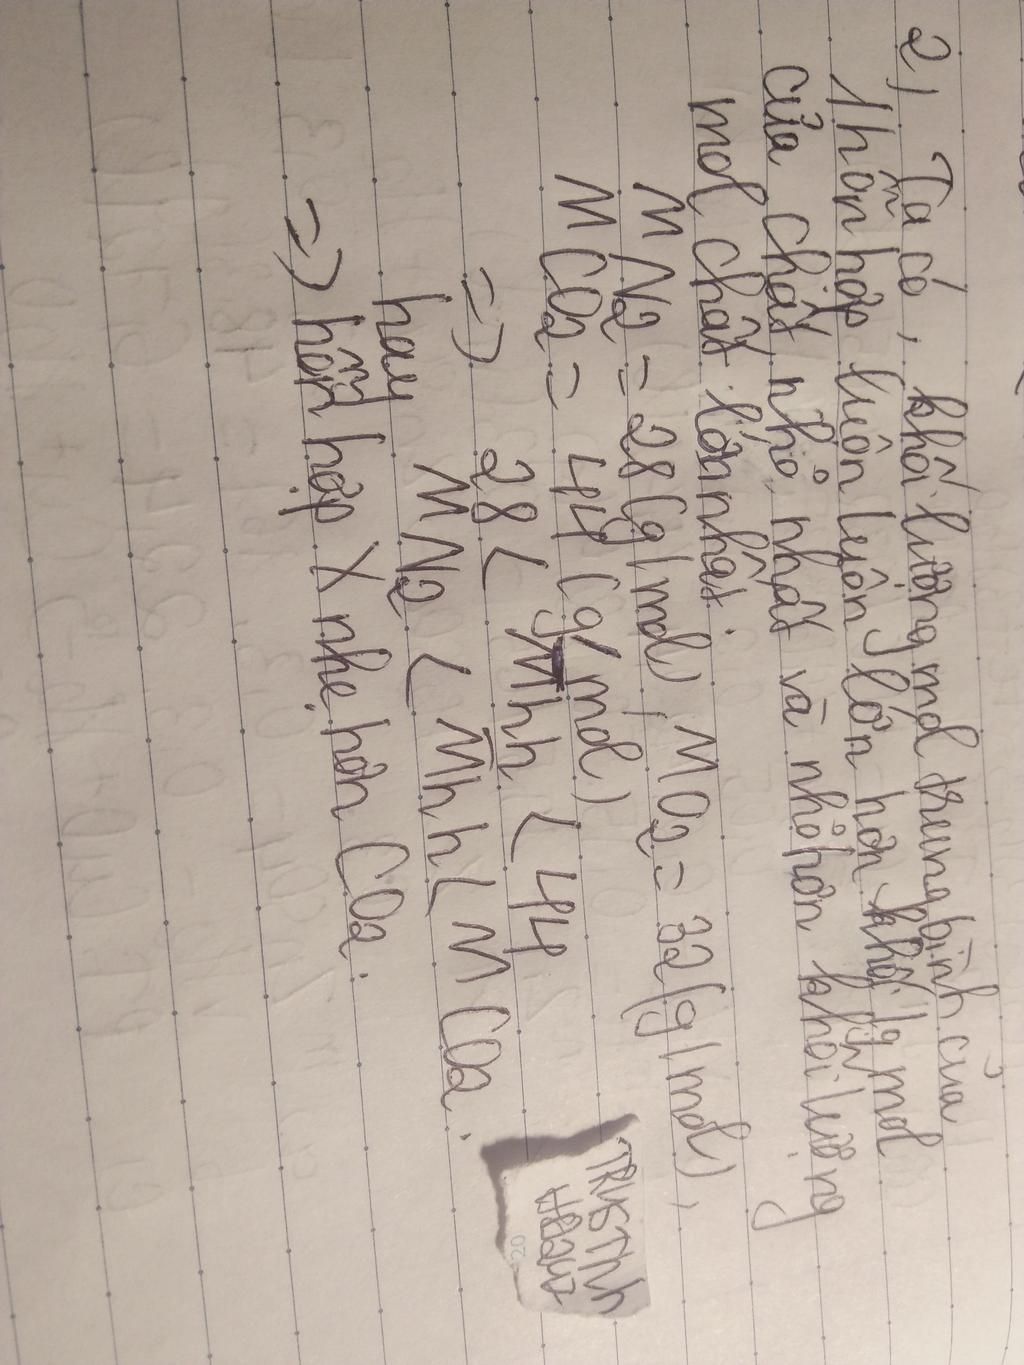 2) Ta có, khối lượng mol trung bình của
1 hỗn hợp luôn luôn lớn hơn khối lg mol
của chất nhỏ nhất và nhỏ hơn khối lượng
mol chất lớn nhất.
M N2 = 28 (g/mol), M O2 = 32 (g/mol),
M CO2 = 44 (g/mol)
=> 28 < M̅hh < 44
hay M N2 < M̅hh < M CO2.
=> hỗn hợp X nhẹ hơn CO2.